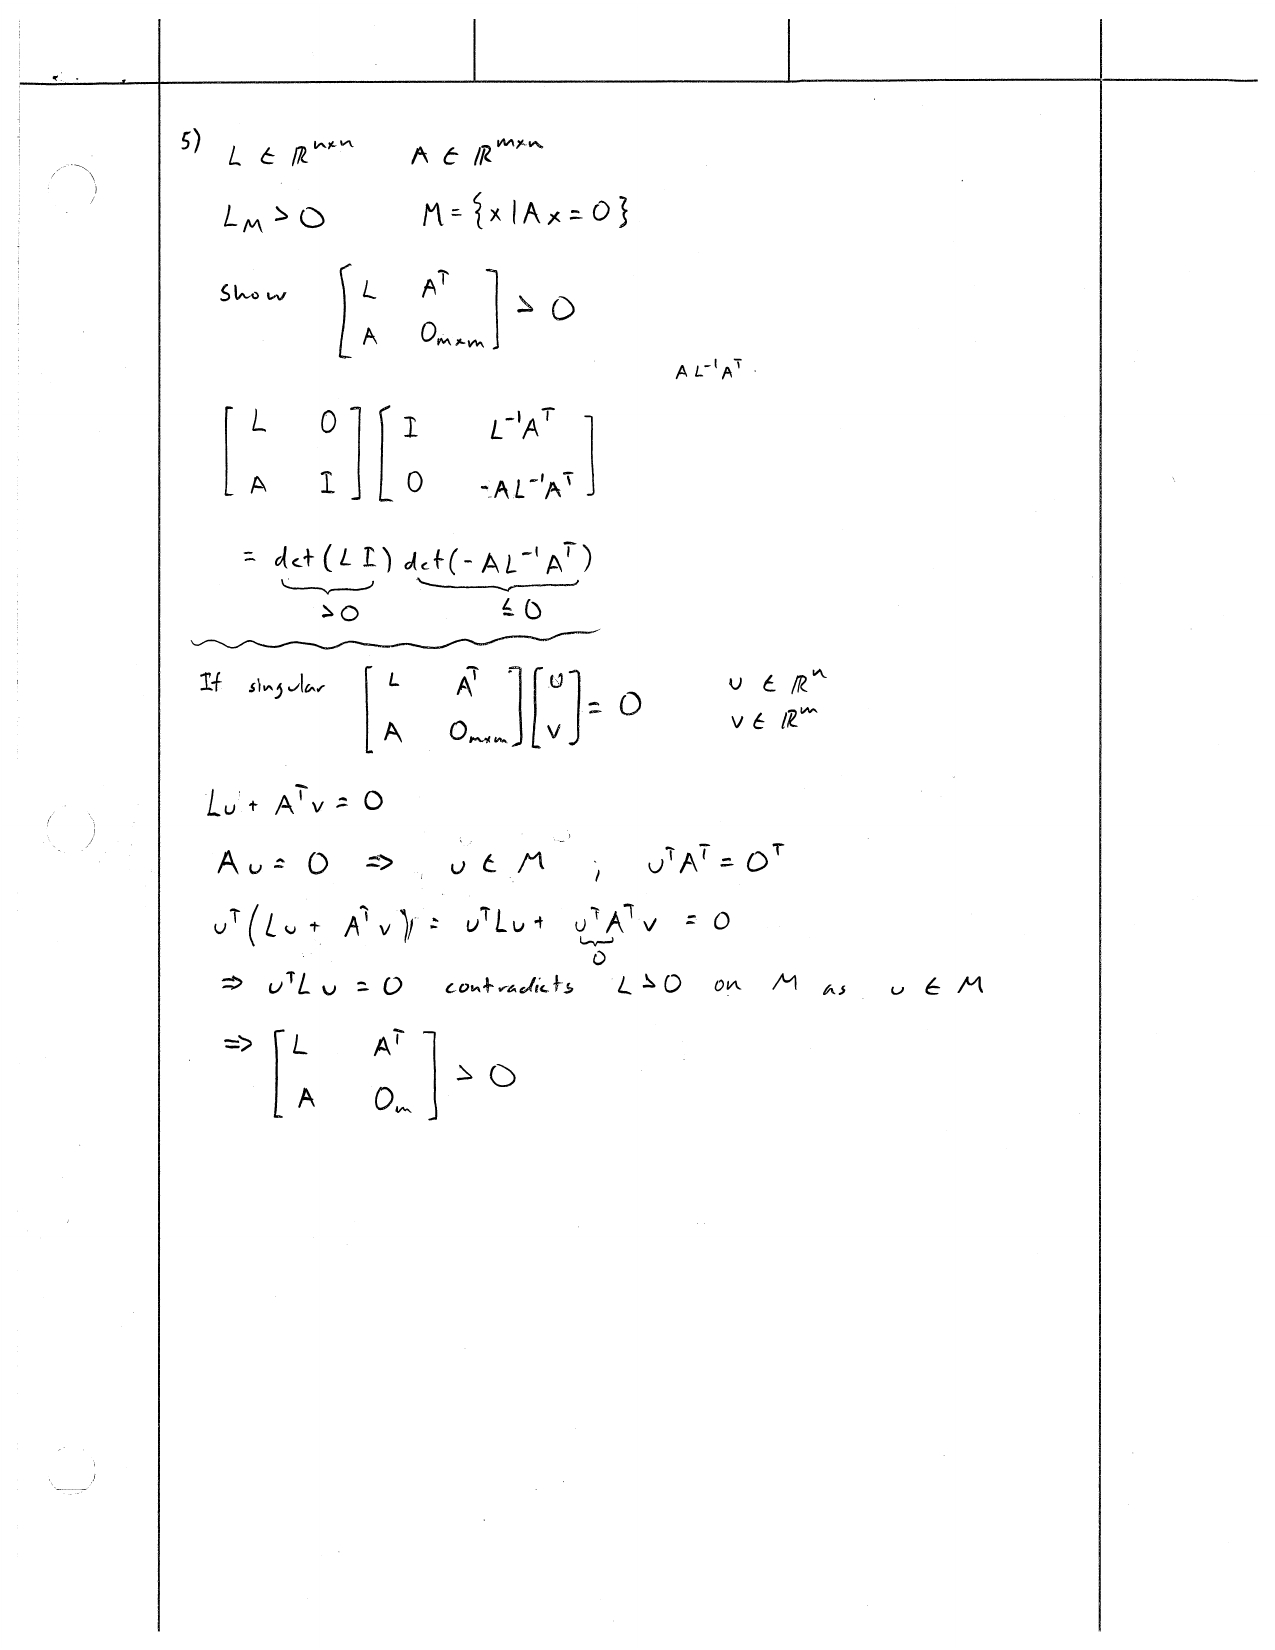 5) L ∈ ℝⁿˣⁿ A ∈ ℝᵐˣⁿ
L_M > 0 M = {x | A x = 0}
Show [ L Aᵀ ; A 0_{m×m} ] > 0
A L⁻¹ Aᵀ
[ L 0 ; A I ] [ I L⁻¹Aᵀ ; 0 -A L⁻¹ Aᵀ ]
= det(L I) det(-A L⁻¹ Aᵀ)
> 0 ≤ 0
If singular [ L Aᵀ ; A 0_{m×m} ] [ u ; v ] = 0 u ∈ ℝⁿ
v ∈ ℝᵐ
Lu + Aᵀv = 0
Au = 0 ⇒ u ∈ M ; uᵀAᵀ = 0ᵀ
uᵀ(Lu + Aᵀv) = uᵀLu + uᵀAᵀv = 0
0
⇒ uᵀLu = 0 contradicts L > 0 on M as u ∈ M
⇒ [ L Aᵀ ; A 0_m ] > 0